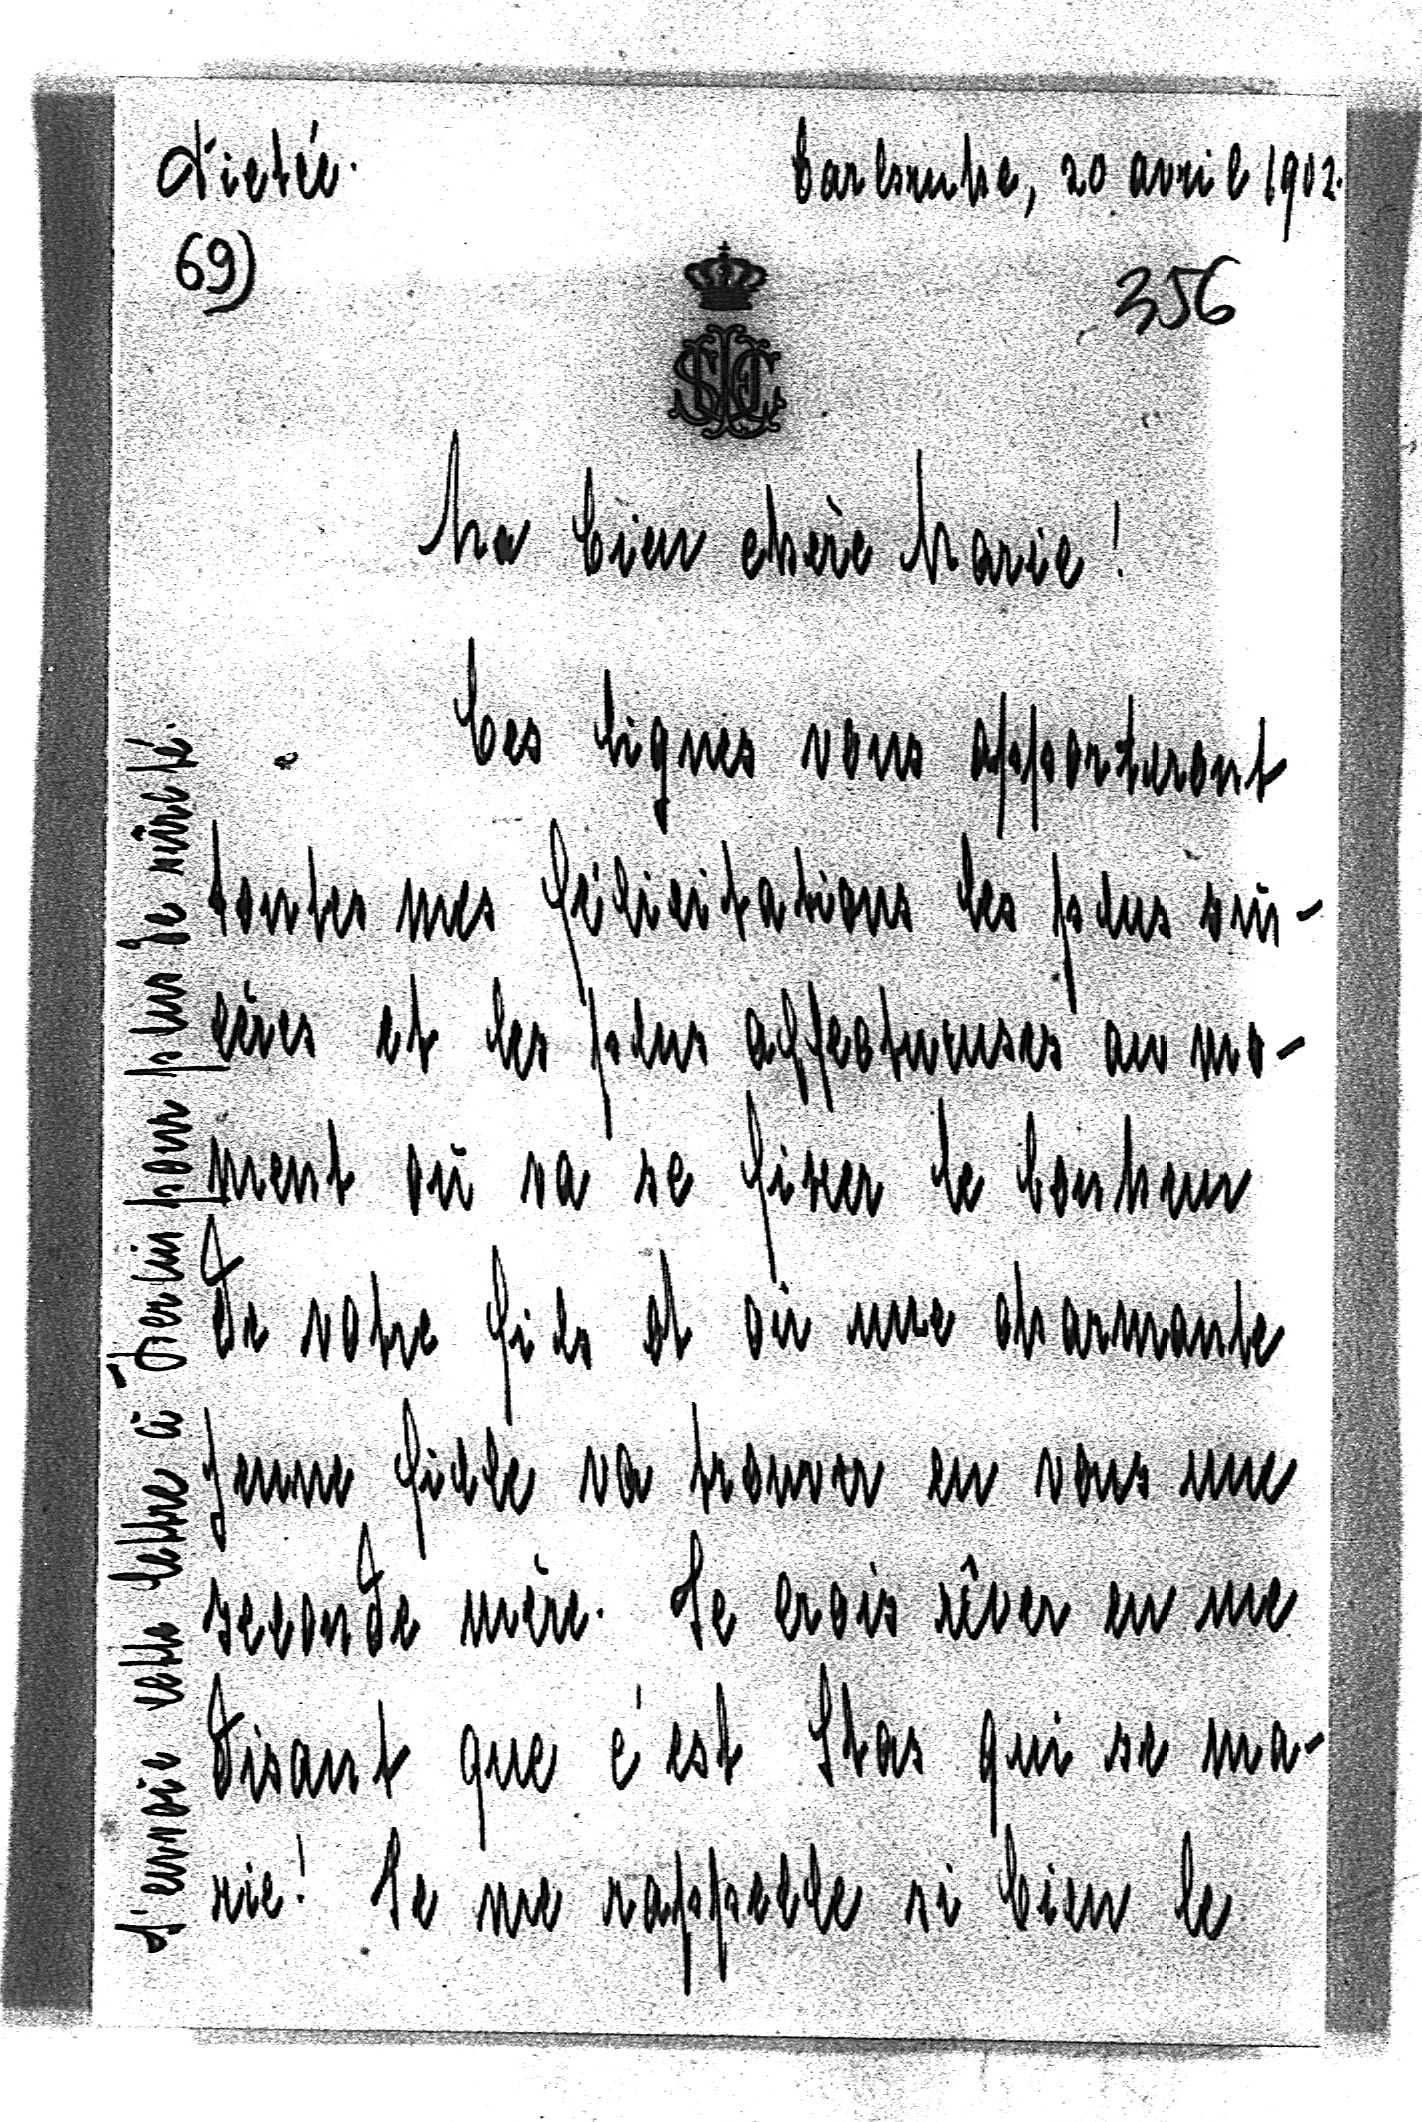 Dictée.
Carlsruhe, 20 avril 1902.
69)
356
Ma bien chère Marie!
Ces lignes vous apporteront
toutes mes félicitations les plus sin-
cères et les plus affectueuses au mo-
ment où va se fixer le bonheur
de votre fils et où une charmante
jeune fille va trouver en vous une
seconde mère. Je crois rêver en me
disant que c'est Stas qui se ma-
rie! Je me rappelle si bien le
J'envoie cette lettre à Berlin pour plus de sûreté.